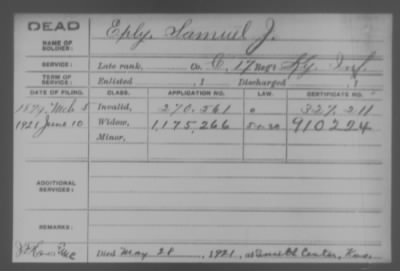 DEAD
NAME OF SOLDIER: Eply, Samuel J.
SERVICE: Late rank, Co. C, 17 Reg't Ky. Inf.
TERM OF SERVICE: Enlisted , 1 Discharged , 1
DATE OF FILING. CLASS. APPLICATION NO. LAW. CERTIFICATE NO.
1879, Mch 5 Invalid, 270.561 327.211
1921 June 10 Widow, 1,175,266 910224
Minor,
ADDITIONAL SERVICES:
REMARKS:
Died May 28, 1921, at Smith Center, Kans.